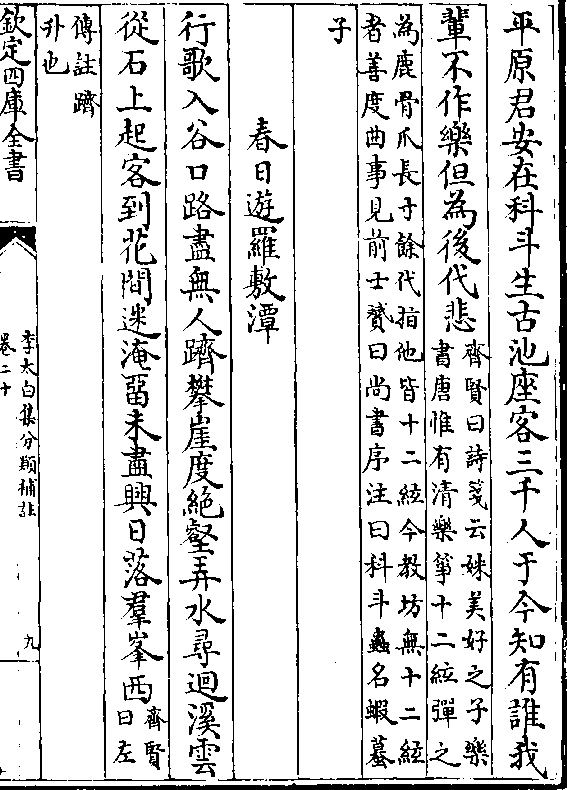 平原君安在科斗生古池座客三千人于今知有誰我
輩不作樂但為後代悲
齊賢曰詩箋云姝美好之子樂
書唐惟有清樂箏十二絃彈之
為鹿骨爪長寸餘代指他皆十二絃今教坊無十二絃
者善度曲事見前士贇曰尚書序注曰科斗蟲名蝦蟇
子
春日遊羅敷潭
行歌入谷口路盡無人躋攀崖度絶壑弄水尋迴溪雲
從石上起客到花間迷淹留未盡興日落羣峯西
齊賢
曰左
傳註躋
升也
欽定四庫全書
李太白集分類補註
卷二十
九